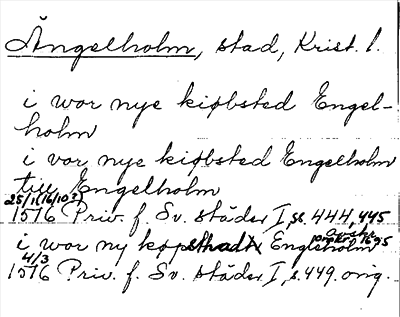 Ängelholm, stad, Krist. l.
i wor nye kiøbsted Engel-
holm
i vor nye kiøbsted Engelholm
till Engelholm
25/1 (16/10 3)
1516 Priv. f. Sv. städer I, s. 444, 445
avskr.
i wor ny køpsthadh Engleholm omkr. 1695
4/3
1516 Priv. f. Sv. städer I, s. 449. orig.